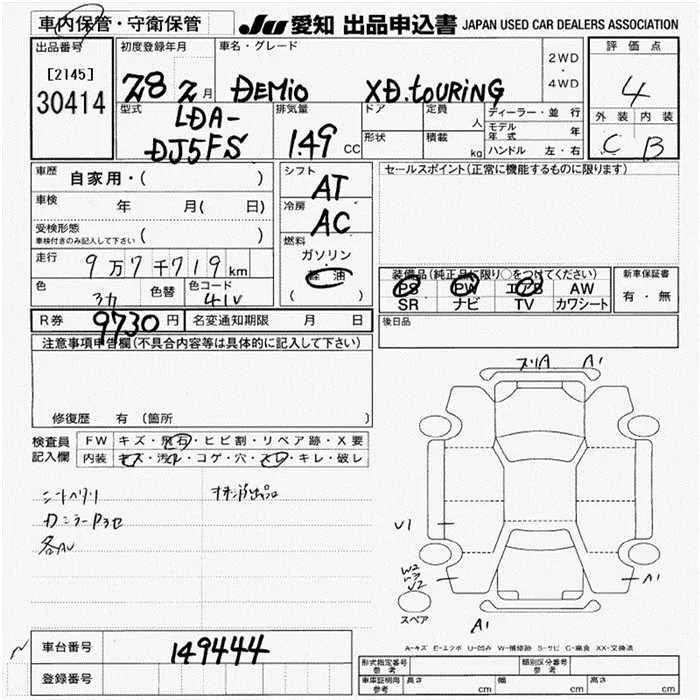 車内保管・守衛保管
JU 愛知 出品申込書 JAPAN USED CAR DEALERS ASSOCIATION
出品番号
[2145]
30414
初度登録年月
28 2月
車名・グレード
DEMIO XD.TOURING
2WD
・
4WD
評価点
4
外装 内装
C B
型式
LDA-
DJ5FS
排気量
1.49 CC
ドア
形状
定員 人
積載 kg
ディーラー・並行
モデル年式 年
ハンドル 左・右
車歴 自家用・( )
車検 年 月( 日)
受検形態
車検付きのみ記入して下さい ( )
走行 9万7千719km
色
色替
色コード
41V
シフト
AT
冷房
AC
燃料
ガソリン
・
軽油
( )
セールスポイント(正常に機能するものに限ります)
装備品(純正品に限り○をつけてください)
PS PW エアB AW
SR ナビ TV カワシート
新車保証書
有・無
R券 9730円
名変通知期限 月 日
後日品
注意事項申告欄(不具合内容等は具体的に記入して下さい)
修復歴 有 (箇所
検査員
記入欄
FW キズ・飛石・ヒビ割・リペア跡・X要
内装 キズ・汚れ・コゲ・穴・スレ・キレ・破レ
A1
U1
W2
U2
A1
A1
スペア
A-キズ E-エクボ U-凹み W-補修跡 S-サビ C-腐食 XX-交換済
車台番号 149444
登録番号
形式指定番号
参考
類別区分番号
参考
車庫証明用
参考
長さ cm 幅 cm 高さ cm